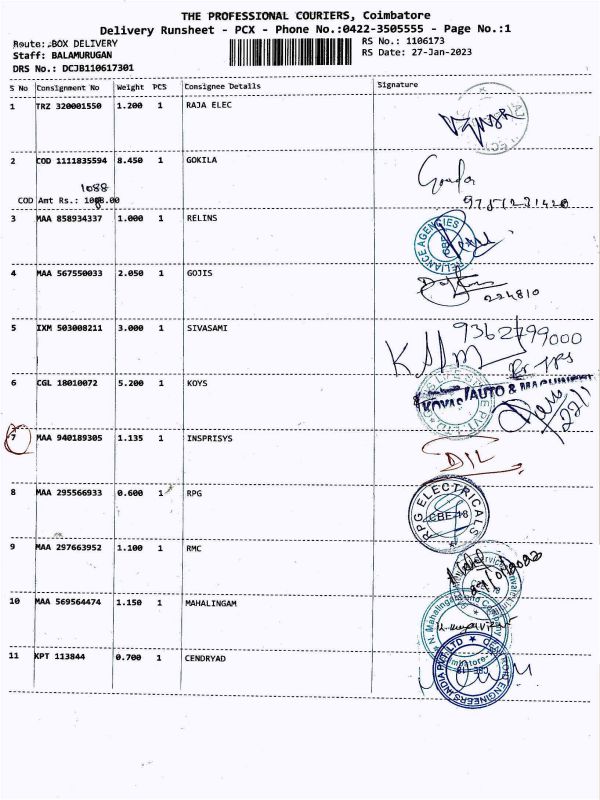 THE PROFESSIONAL COURIERS, Coimbatore
Delivery Runsheet - PCX - Phone No.:0422-3505555 - Page No.:1
Route: BOX DELIVERY
RS No.: 1106173
Staff: BALAMURUGAN
RS Date: 27-Jan-2023
DRS No.: DCJB110617301
S No Consignment No Weight PCS Consignee Details Signature
1 TRZ 320001550 1.200 1 RAJA ELEC
2 COD 1111835594 8.450 1 GOKILA
1088
COD Amt Rs.: 1088.00
3 MAA 858934337 1.000 1 RELINS
RELIANCE AGENCIES
4 MAA 567550033 2.050 1 GOJIS
224810
5 IXM 503008211 3.000 1 SIVASAMI
9362799000
6 CGL 18010072 5.200 1 KOYS
KOVAS AUTO & MACHINERY
7 MAA 940189305 1.135 1 INSPRISYS
DIL
8 MAA 295566933 0.600 1 RPG
RPG ELECTRICALS
CBE-18
9 MAA 297663952 1.100 1 RMC
10 MAA 569564474 1.150 1 MAHALINGAM
N. Mahalingam and Company
11 KPT 113844 0.700 1 CENDRYAD
ENGINEERS INDIA PVT LTD